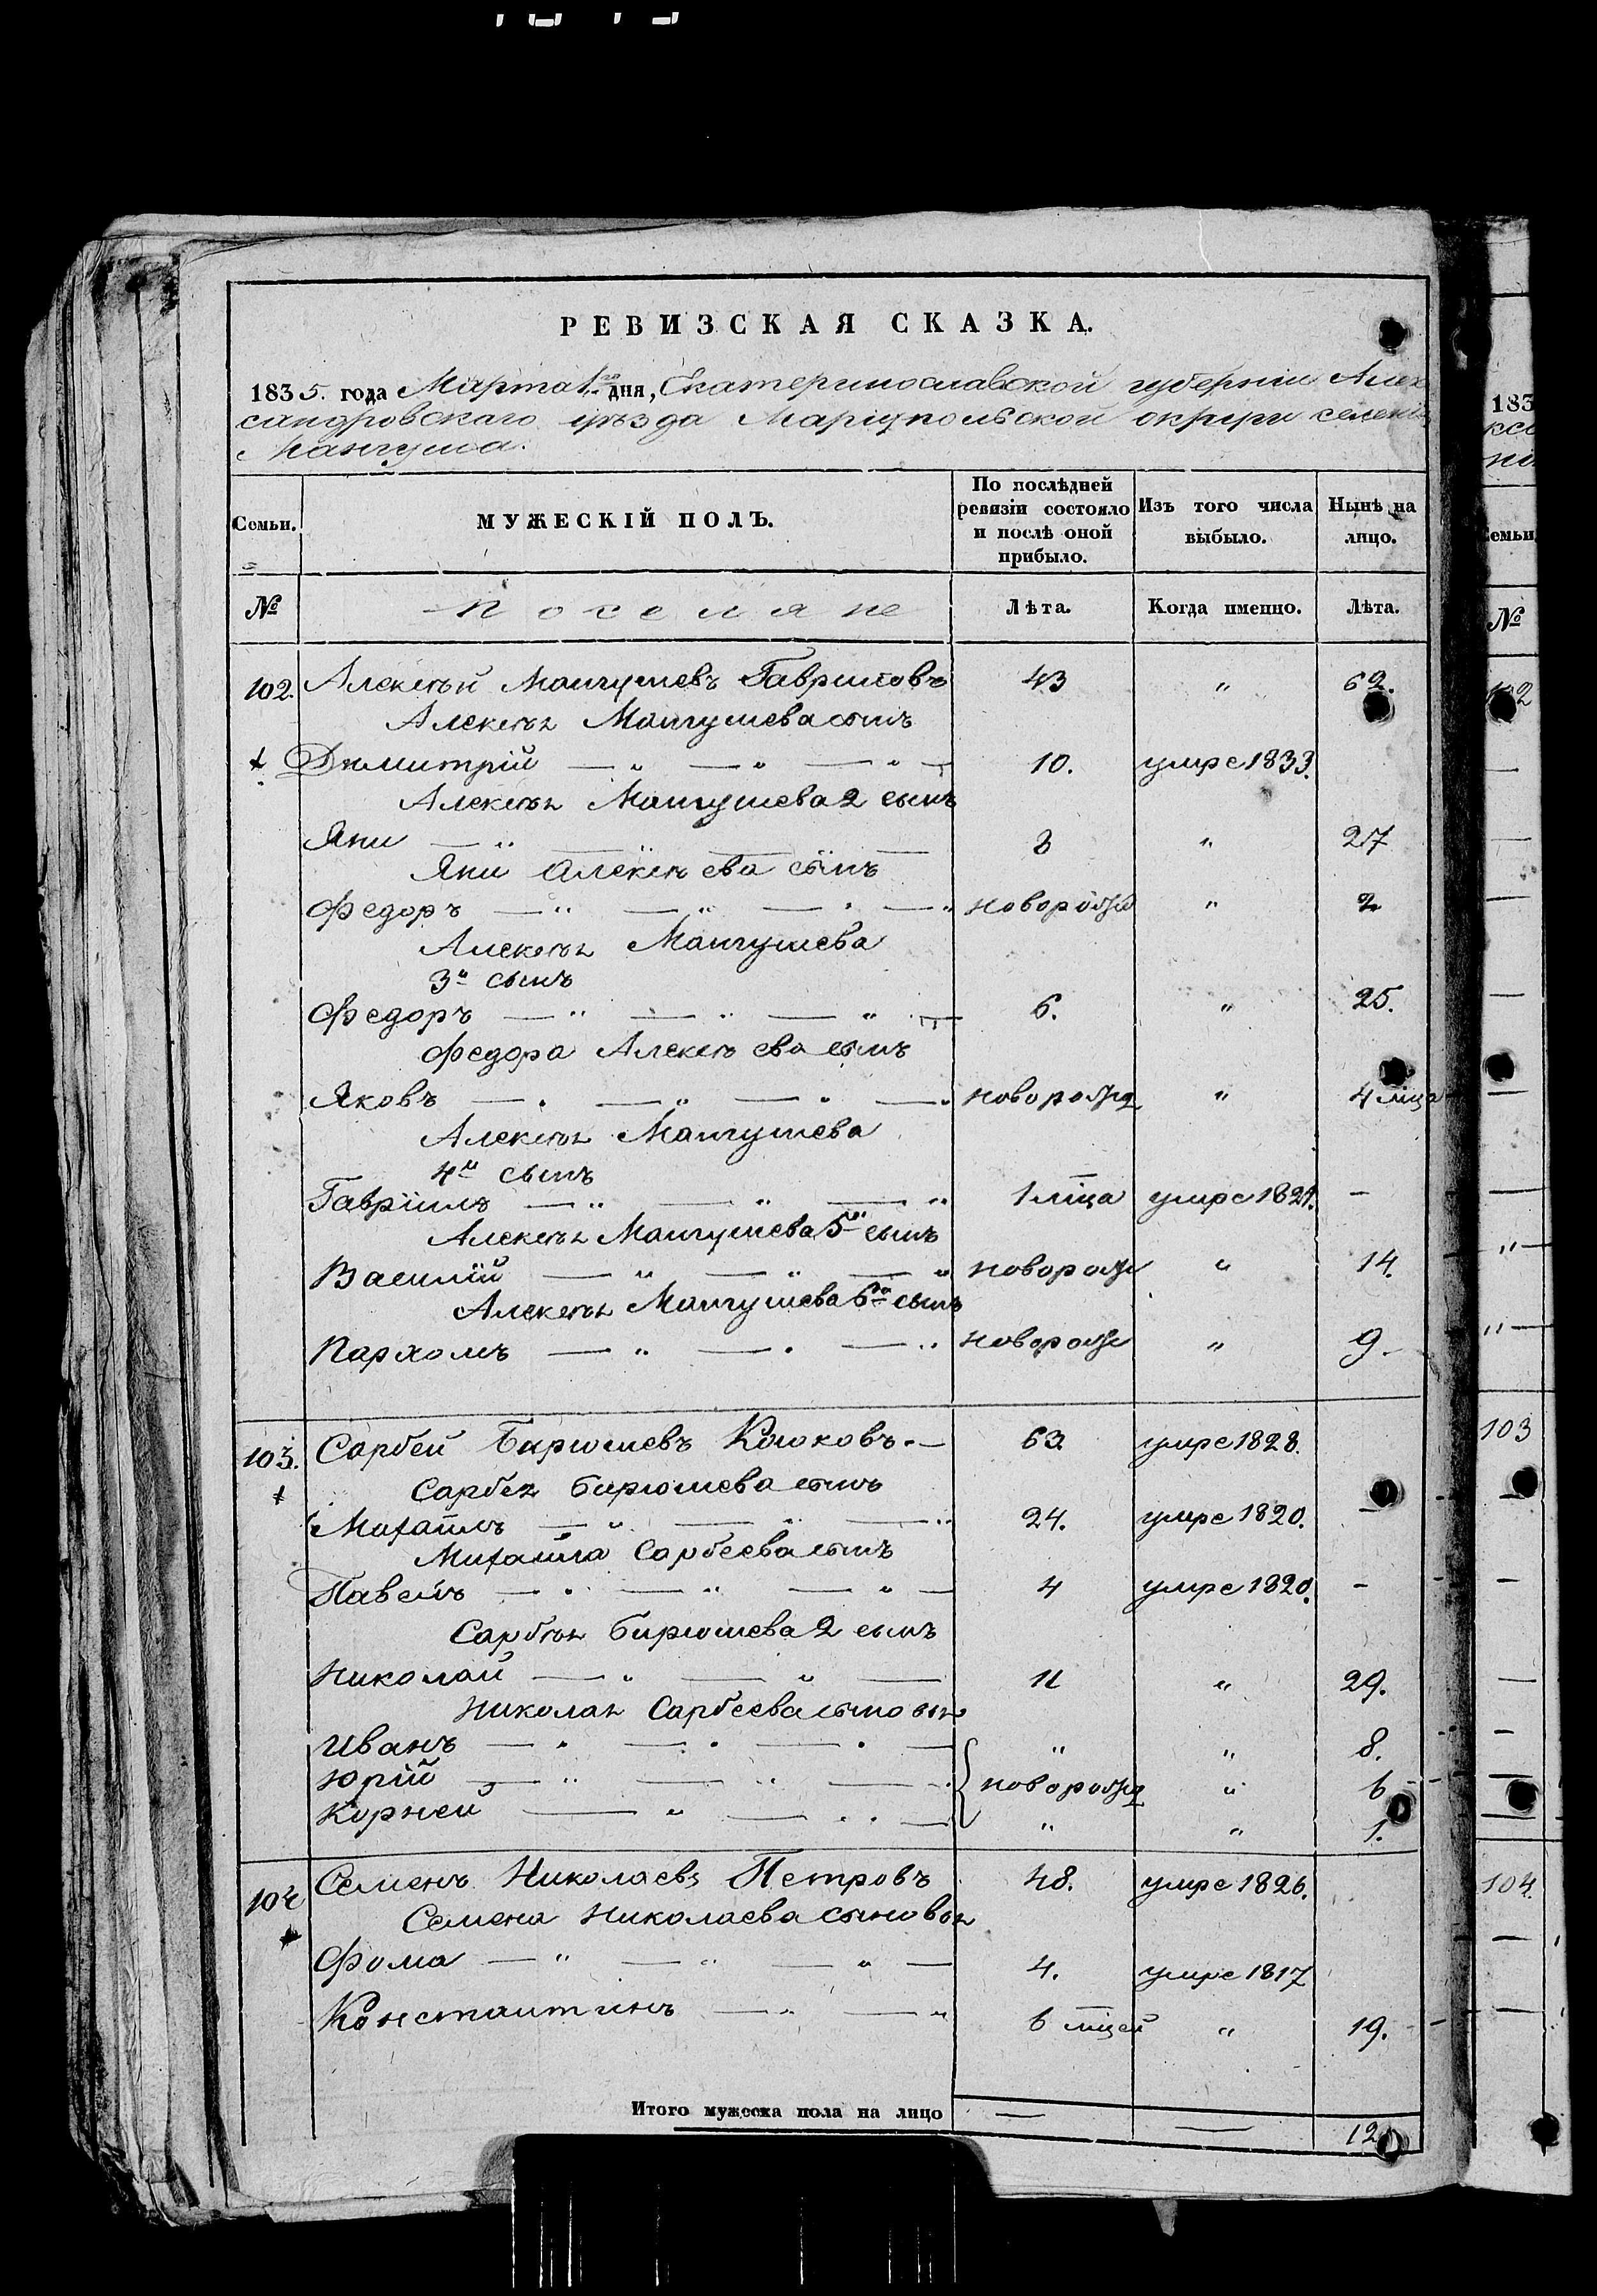 РЕВИЗСКАЯ СКАЗКА.
1835. года Марта 1го дня, Екатеринославской губернии Алек
сандровскаго уѣзда Мариупольской округи селенія
Мангуша.
Семьи.
МУЖЕСКІЙ ПОЛЪ.
По послѣдней ревизіи состояло и послѣ оной прибыло.
Изъ того числа выбыло.
Нынѣ на лицо.
№ Поселяне Лѣта. Когда именно. Лѣта.
102. Алексѣй Мангушевъ Гавриловъ 43 " 62.
Алексѣя Мангушева сынъ
Димитрій — " — " — " — 10. умре 1833.
Алексѣя Мангушева 2 сынъ
Яни — " — — — 8 " 27
Яни Алексѣева сынъ
Федоръ — " — " — " — " новорожд " 2
Алексѣя Мангушева
3й сынъ
Федоръ — " — " — " — 6. " 25.
Федора Алексѣева сынъ
Яковъ — " — " — " — " новорожд " 4 мца
Алексѣя Мангушева
4й сынъ
Гавріилъ — " — " — " 1 мца умре 1821. —
Алексѣя Мангушева 5й сынъ
Василій — " — " — " новорож " 14.
Алексѣя Мангушева 6й сынъ
Пархомъ — " — " — " новорож " 9.
103. Сарбей Бирюшевъ Коюковъ. — 63 умре 1828.
Сарбея Бирюшева сынъ
Михаилъ — " — " — " 24. умре 1820. —
Михаила Сарбеева сынъ
Павелъ — " — " — " — 4 умре 1820. —
Сарбѣя Бирюшева 2 сынъ
Николай — " — " — 11 " 29.
Николая Сарбеева сыновья
Иванъ — " — " — " — " " 8.
Юрій — " — " — " новорожд " 6
Корней — " — " — " " 1.
104 Семенъ Николаевъ Петровъ 48. умре 1826.
Семена Николаева сыновья
Фома — " — " — " — 4. умре 1817
Константинъ — " — " 6 мцей " 19.
Итого мужеска пола на лицо — — 12
183
Семьи
№
102
103
104.